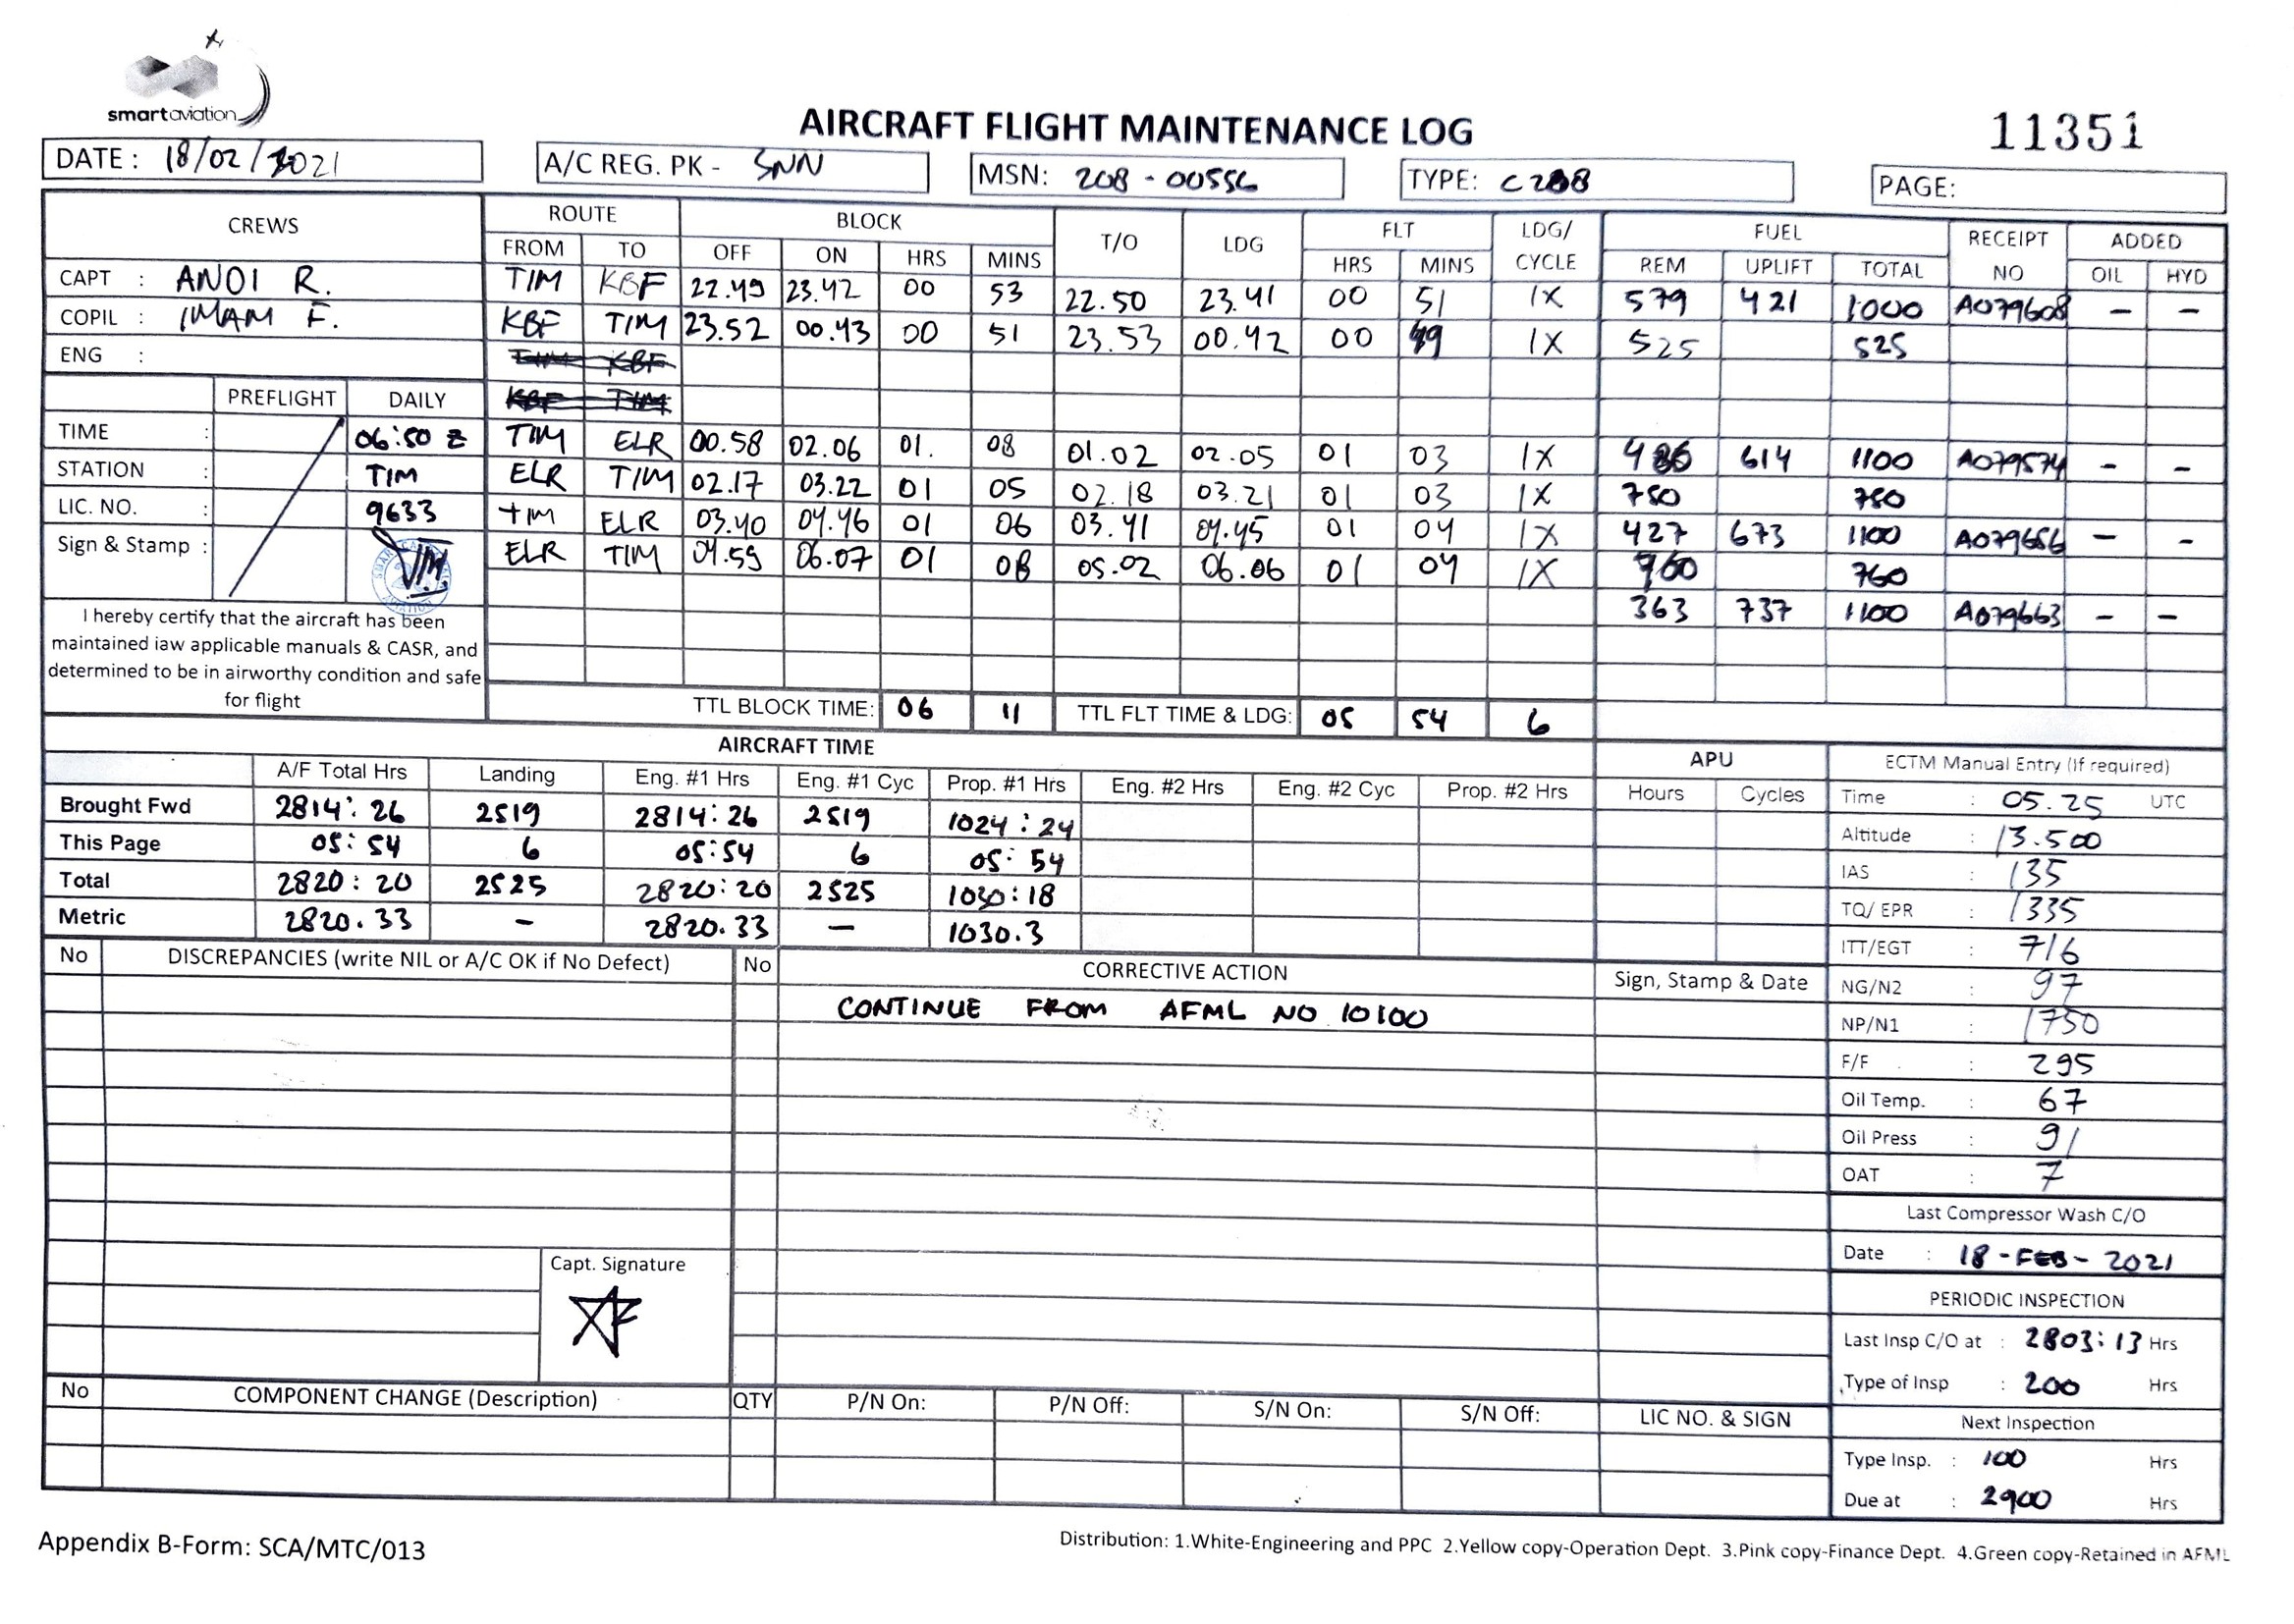 smartaviation
AIRCRAFT FLIGHT MAINTENANCE LOG
11351
DATE : 18/02/2021
A/C REG. PK - SNN
MSN: 208 - 00556
TYPE: C208
PAGE:
CREWS
ROUTE BLOCK T/O LDG FLT LDG/ CYCLE FUEL RECEIPT NO ADDED
FROM TO OFF ON HRS MINS HRS MINS REM UPLIFT TOTAL OIL HYD
CAPT : ANDI R.
COPIL : IMAM F.
ENG :
TIM KBF 22.49 23.42 00 53 22.50 23.41 00 51 1X 579 421 1000 A079608 - -
KBF TIM 23.52 00.43 00 51 23.53 00.42 00 49 1X 525 525
TIM KBF
KBF TIM
TIM ELR 00.58 02.06 01. 08 01.02 02.05 01 03 1X 486 614 1100 A079574 - -
ELR TIM 02.17 03.22 01 05 02.18 03.21 01 03 1X 780 780
TIM ELR 03.40 04.46 01 06 03.41 04.45 01 04 1X 427 673 1100 A079656 - -
ELR TIM 04.59 06.07 01 08 05.02 06.06 01 04 1X 760 760
363 737 1100 A079663 - -
PREFLIGHT DAILY
TIME : 06:50 Z
STATION : TIM
LIC. NO. : 9633
Sign & Stamp :
I hereby certify that the aircraft has been
maintained iaw applicable manuals & CASR, and
determined to be in airworthy condition and safe
for flight
TTL BLOCK TIME: 06 11 TTL FLT TIME & LDG: 05 54 6
AIRCRAFT TIME
A/F Total Hrs Landing Eng. #1 Hrs Eng. #1 Cyc Prop. #1 Hrs Eng. #2 Hrs Eng. #2 Cyc Prop. #2 Hrs
Brought Fwd 2814:26 2519 2814:26 2519 1024:24
This Page 05:54 6 05:54 6 05:54
Total 2820:20 2525 2820:20 2525 1030:18
Metric 2820.33 - 2820.33 - 1030.3
APU
Hours Cycles
ECTM Manual Entry (If required)
Time : 05.25 UTC
Altitude : 13.500
IAS : 135
TQ/ EPR : 1335
ITT/EGT : 716
NG/N2 : 97
NP/N1 : 1750
F/F : 295
Oil Temp. : 67
Oil Press : 91
OAT : 7
Last Compressor Wash C/O
Date : 18-FEB-2021
PERIODIC INSPECTION
Last Insp C/O at : 2803:13 Hrs
Type of Insp : 200 Hrs
Next Inspection
Type Insp. : 100 Hrs
Due at : 2900 Hrs
No DISCREPANCIES (write NIL or A/C OK if No Defect) No CORRECTIVE ACTION Sign, Stamp & Date
CONTINUE FROM AFML NO 10100
Capt. Signature
No COMPONENT CHANGE (Description) QTY P/N On: P/N Off: S/N On: S/N Off: LIC NO. & SIGN
Appendix B-Form: SCA/MTC/013
Distribution: 1.White-Engineering and PPC 2.Yellow copy-Operation Dept. 3.Pink copy-Finance Dept. 4.Green copy-Retained in AFML